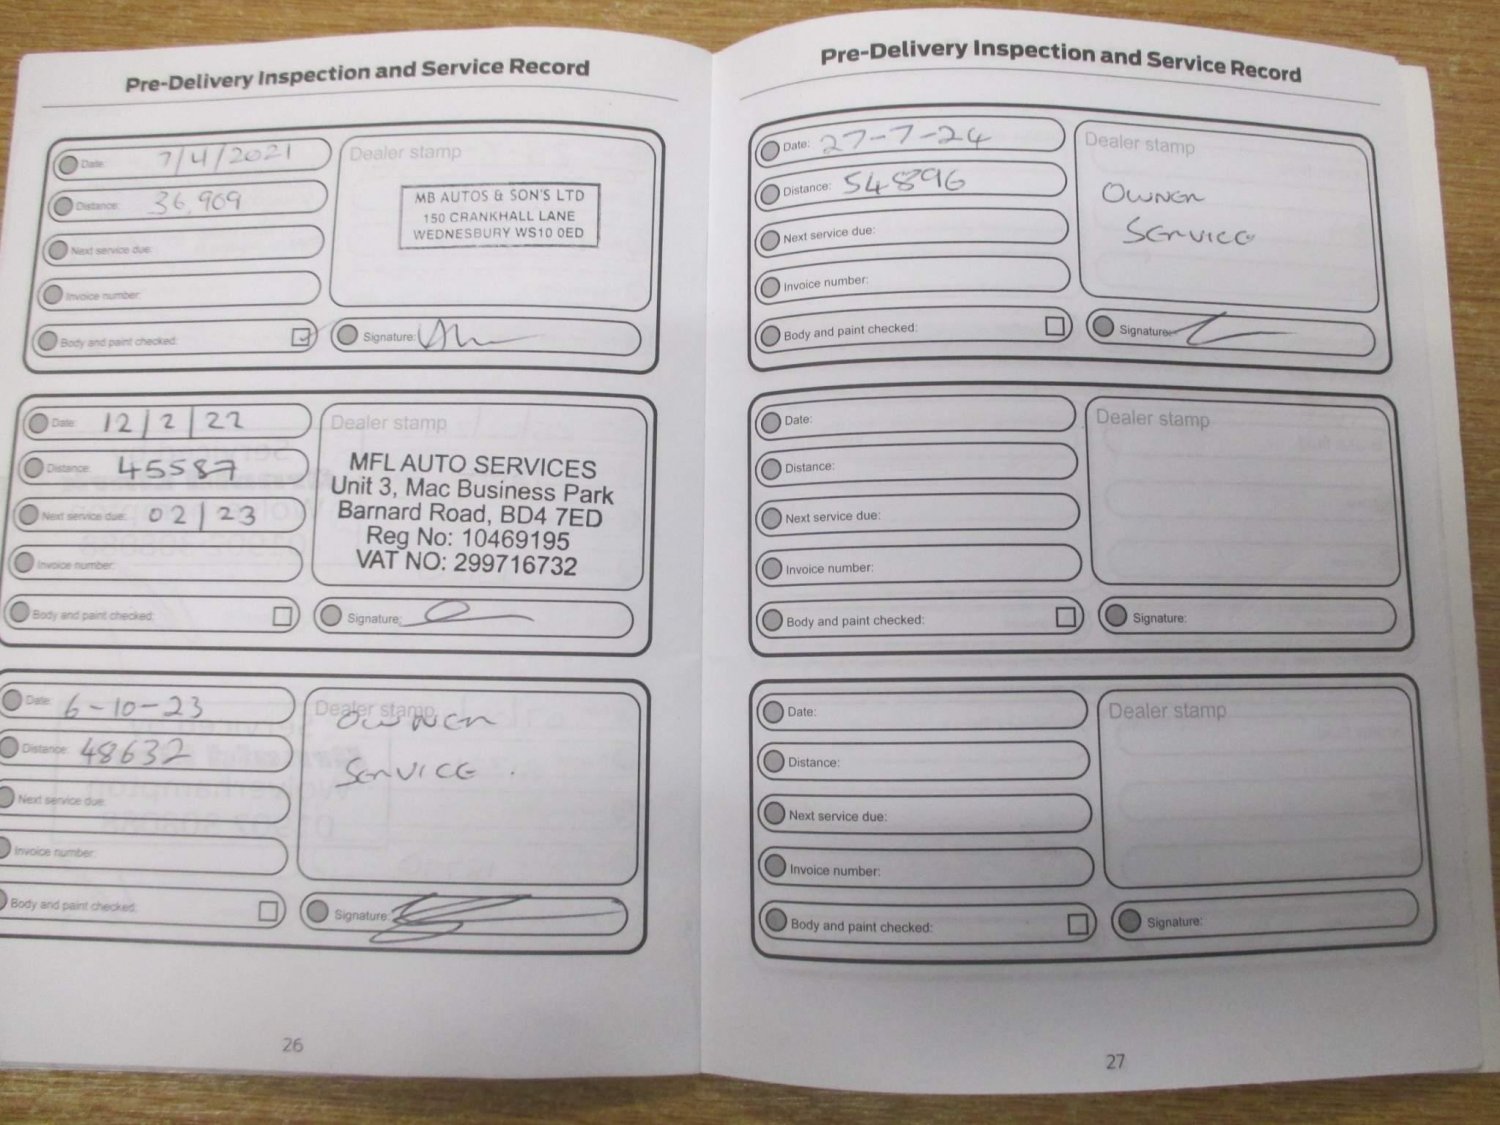 Pre-Delivery Inspection and Service Record
Date: 7/4/2021
Distance: 36,909
Next service due:
Invoice number:
Body and paint checked:
Dealer stamp
MB AUTOS & SON'S LTD
150 CRANKHALL LANE
WEDNESBURY WS10 0ED
Signature:
Date: 12/2/22
Distance: 45587
Next service due: 02/23
Invoice number:
Body and paint checked:
Dealer stamp
MFL AUTO SERVICES
Unit 3, Mac Business Park
Barnard Road, BD4 7ED
Reg No: 10469195
VAT NO: 299716732
Signature:
Date: 6-10-23
Distance: 48632
Next service due:
Invoice number:
Body and paint checked:
Dealer stamp
OWNER
SERVICE
Signature:
26
Pre-Delivery Inspection and Service Record
Date: 27-7-24
Distance: 54896
Next service due:
Invoice number:
Body and paint checked:
Dealer stamp
OWNER
SERVICE
Signature:
Date:
Distance:
Next service due:
Invoice number:
Body and paint checked:
Dealer stamp
Signature:
Date:
Distance:
Next service due:
Invoice number:
Body and paint checked:
Dealer stamp
Signature:
27